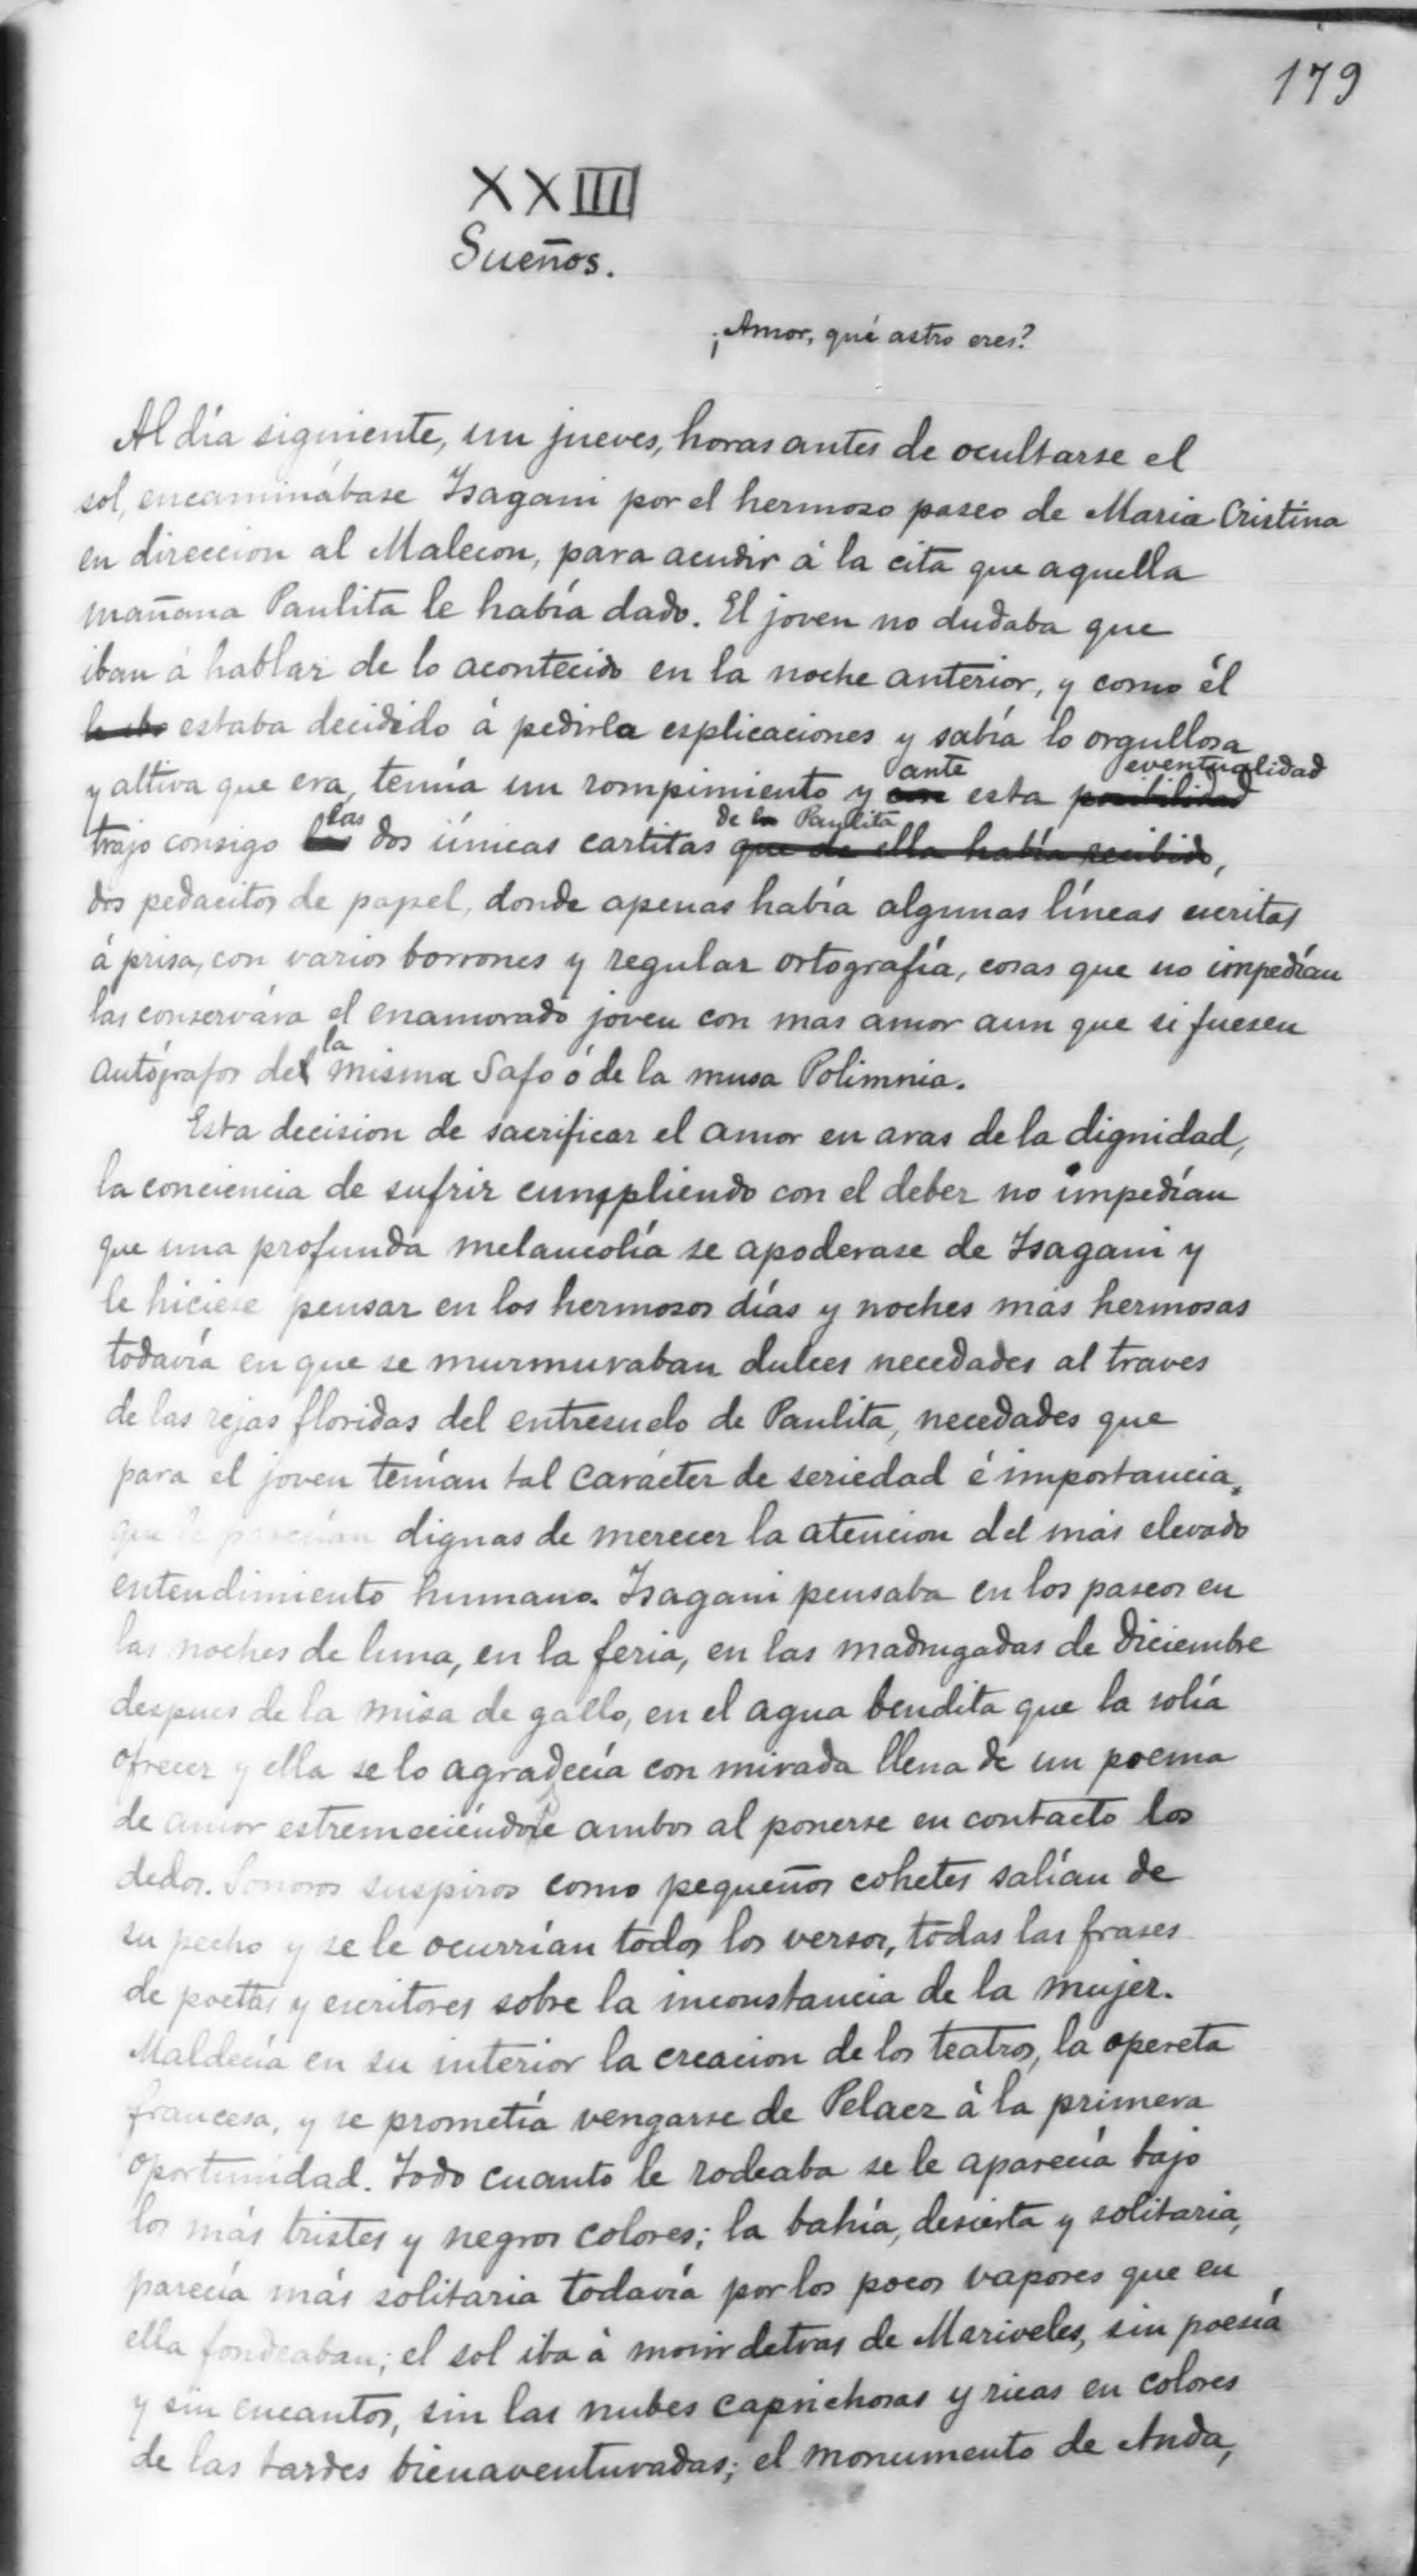 179
XXIIII
Sueños.
¡Amor, qué astro eres?
Al día siguiente, un jueves, horas antes de ocultarse el
sol, encaminábase Isagani por el hermoso paseo de Maria Cristina
en direccion al Malecon, para acudir á la cita que aquella
mañana Paulita le había dado. El joven no dudaba que
iban á hablar de lo acontecido en la noche anterior, y como él
estaba decidido á pedirla esplicaciones y sabía lo orgullosa
ante eventualidad
y altiva que era, temía un rompimiento y esta posibilidad
las de la Paulita
trajo consigo las dos únicas cartitas que de ella había recibido,
dos pedacitos de papel, donde apenas había algunas líneas escritas
á prisa, con varios borrones y regular ortografía, cosas que no impedían
las conservára el enamorado joven con mas amor aun que si fuesen
la
autógrafos del misma Safo ó de la musa Polimnia.
Esta decision de sacrificar el amor en aras de la dignidad,
la conciencia de sufrir cumppliendo con el deber no impedían
que una profunda melancolía se apoderase de Isagani y
le hiciese pensar en los hermosos días y noches más hermosas
todavía en que se murmuraban dulces necedades al traves
de las rejas floridas del entresuelo de Paulita, necedades que
para el joven tenían tal carácter de seriedad é importancia,
que le parecían dignas de merecer la atencion del más elevado
entendimiento humano. Isagani pensaba en los paseos en
las noches de luna, en la feria, en las madrugadas de Diciembre
despues de la misa de gallo, en el agua bendita que la solía
ofrecer y ella se lo agradecía con mirada llena de un poema
de amor estremeciéndose ambos al ponerse en contacto los
dedos. Sonoros suspiros como pequeños cohetes salían de
su pecho y se le ocurrían todos los versos, todas las frases
de poetas y escritores sobre la inconstancia de la mujer.
Maldecía en su interior la creacion de los teatros, la opereta
francesa, y se prometía vengarse de Pelaez á la primera
oportunidad. Todo cuanto le rodeaba se le aparecía bajo
los más tristes y negros colores; la bahía, desierta y solitaria,
parecía más solitaria todavía por los pocos vapores que en
ella fondeaban; el sol iba á morir detras de Mariveles, sin poesía
y sin encantos, sin las nubes caprichosas y ricas en colores
de las tardes bienaventuradas; el monumento de Anda,